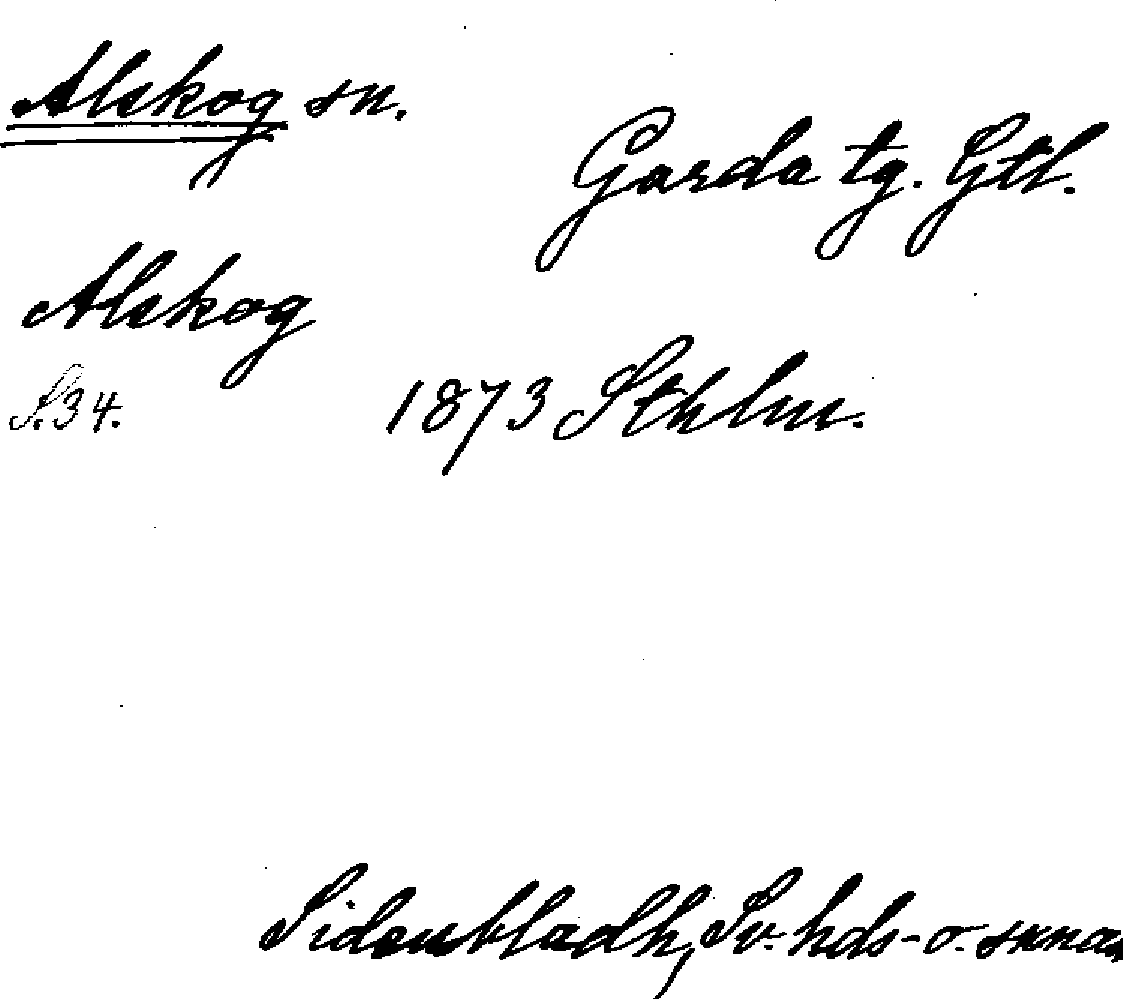 Alskog sn.
Garda tg. Gtl.
Alskog
S.34. 1873 Sthlm.
Sidenbladh, Sv. hds- o. snna